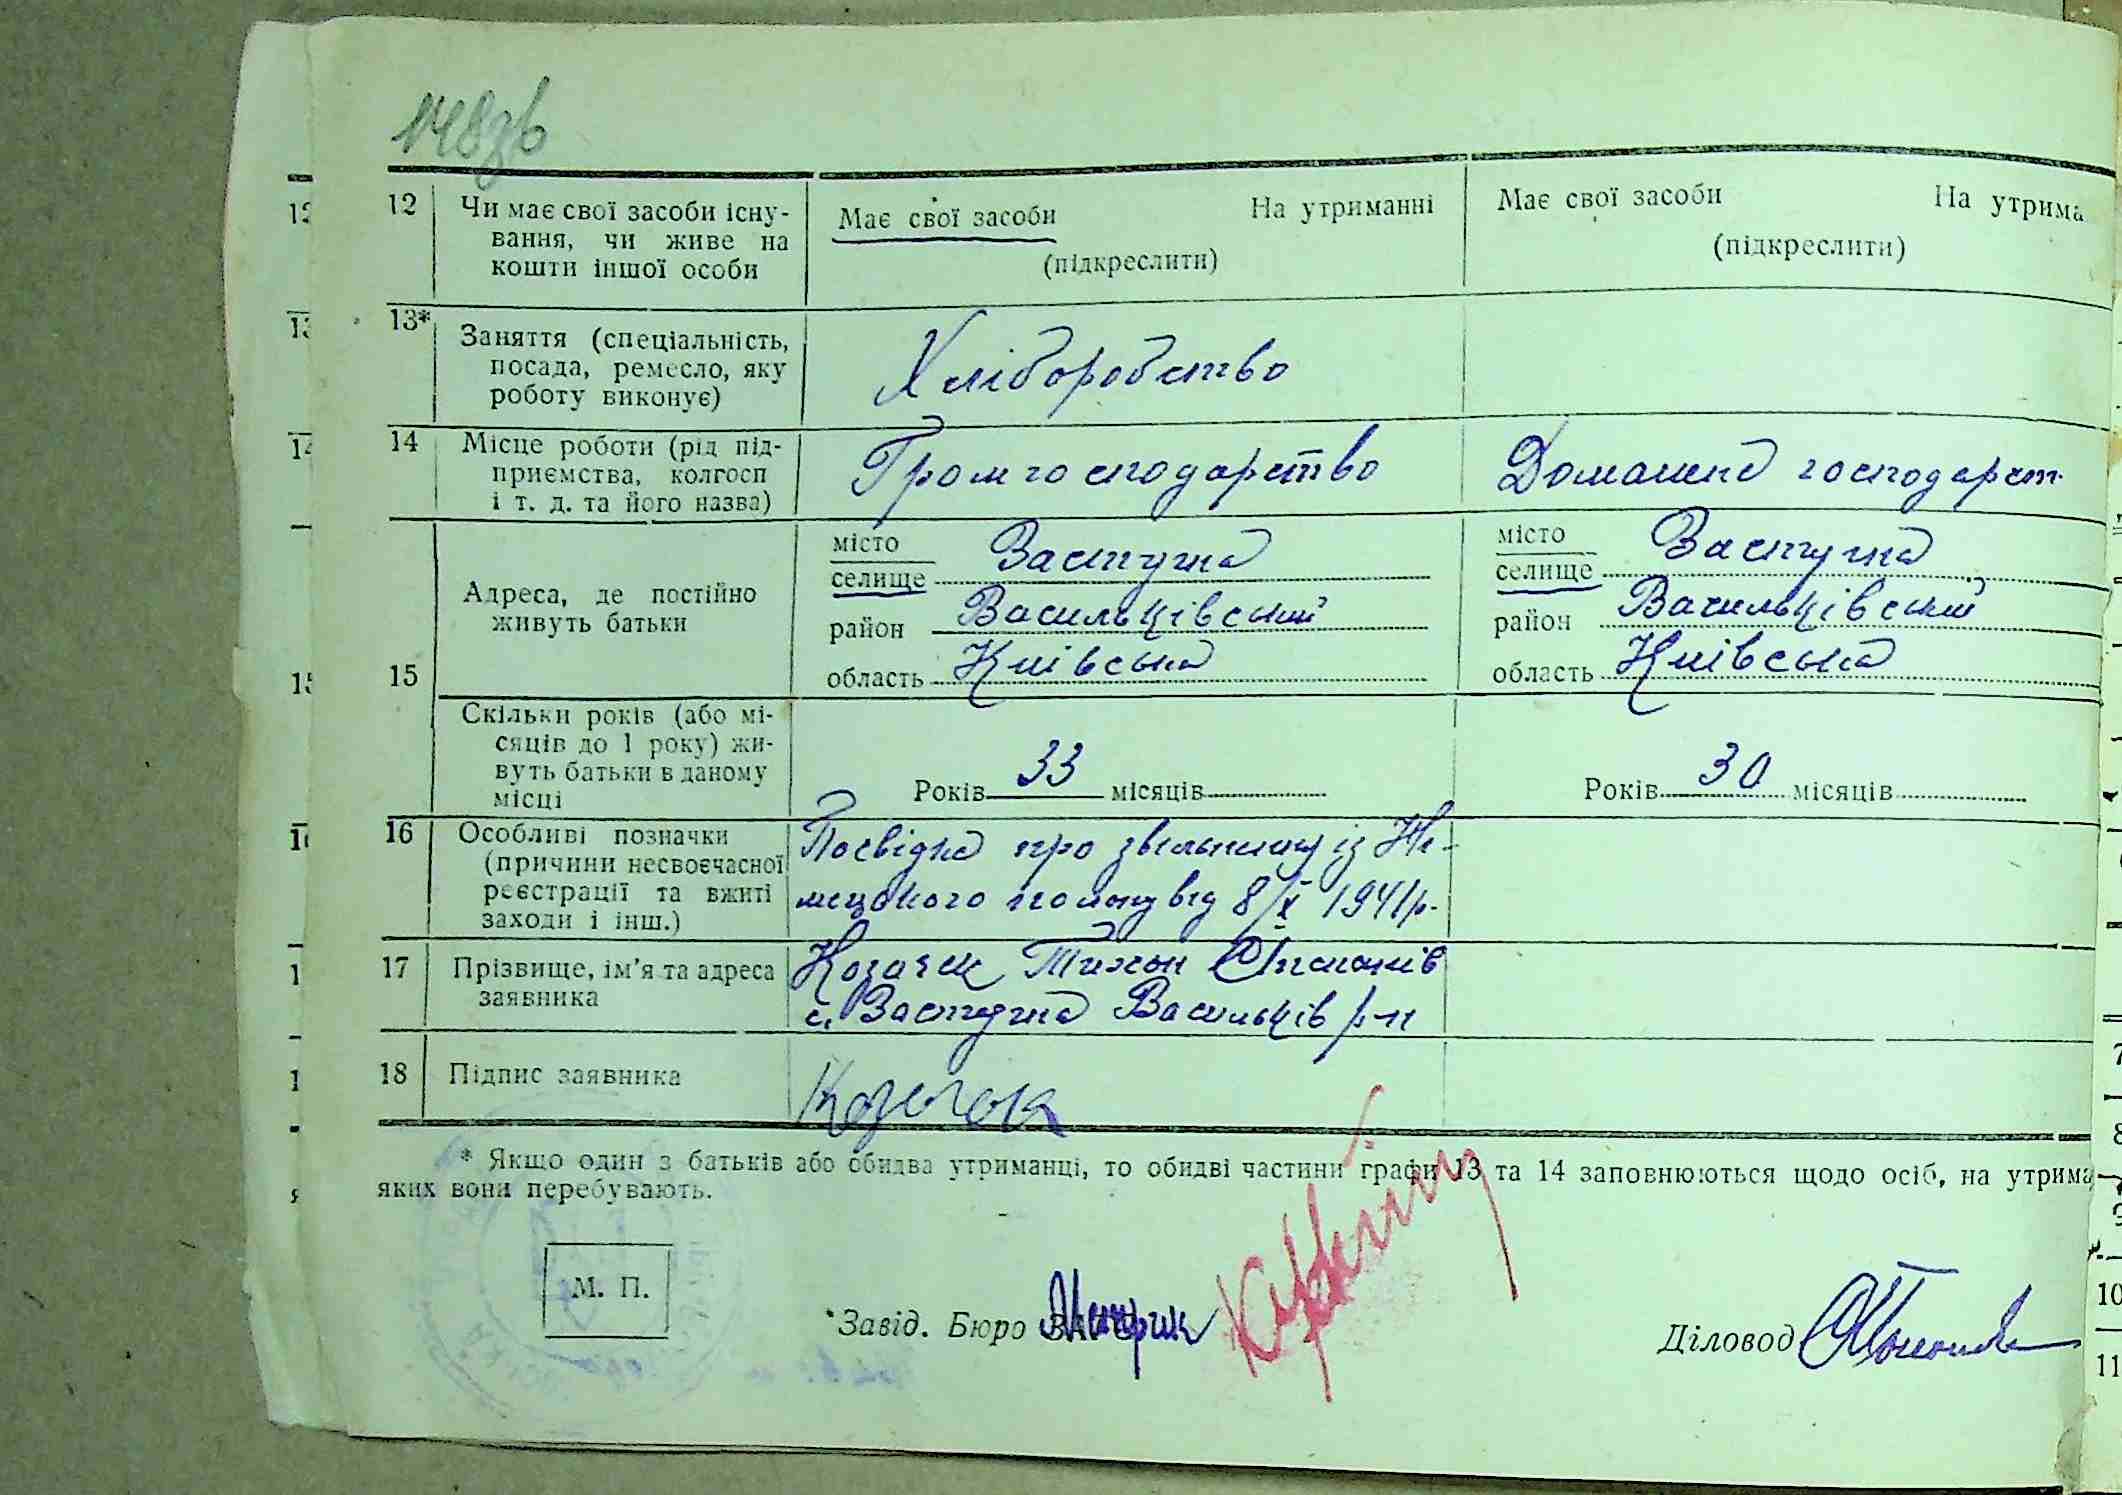 148зв
12 Чи має свої засоби існу-
вання, чи живе на
кошти іншої особи
Має свої засоби На утриманні
(підкреслити)
Має свої засоби На утрима
(підкреслити)
13* Заняття (спеціальність,
посада, ремесло, яку
роботу виконує)
Хліборобство
14 Місце роботи (рід під-
приємства, колгосп
і т. д. та його назва)
Громгосподарство
Домашнє господарст.
15 Адреса, де постійно
живуть батьки
місто
селище Застугна
район Васильківський
область Київська
місто
селище Застугна
район Васильківський
область Київська
Скільки років (або мі-
сяців до 1 року) жи-
вуть батьки в даному
місці
Років 33 місяців
Років 30 місяців
16 Особливі позначки
(причини несвоєчасної
реєстрації та вжиті
заходи і інш.)
Посвідка про звільнення із Ні-
мецького полону від 8/X 1941 р.
17 Прізвище, ім'я та адреса
заявника
Козачок Тихон
с. Застугна Васильків р-н
18 Підпис заявника
Козачок
* Якщо один з батьків або обидва утриманці, то обидві частини графи 13 та 14 заповнюються щодо осіб, на утрима
яких вони перебувають.
М. П.
Завід. Бюро ЗАГС
Діловод